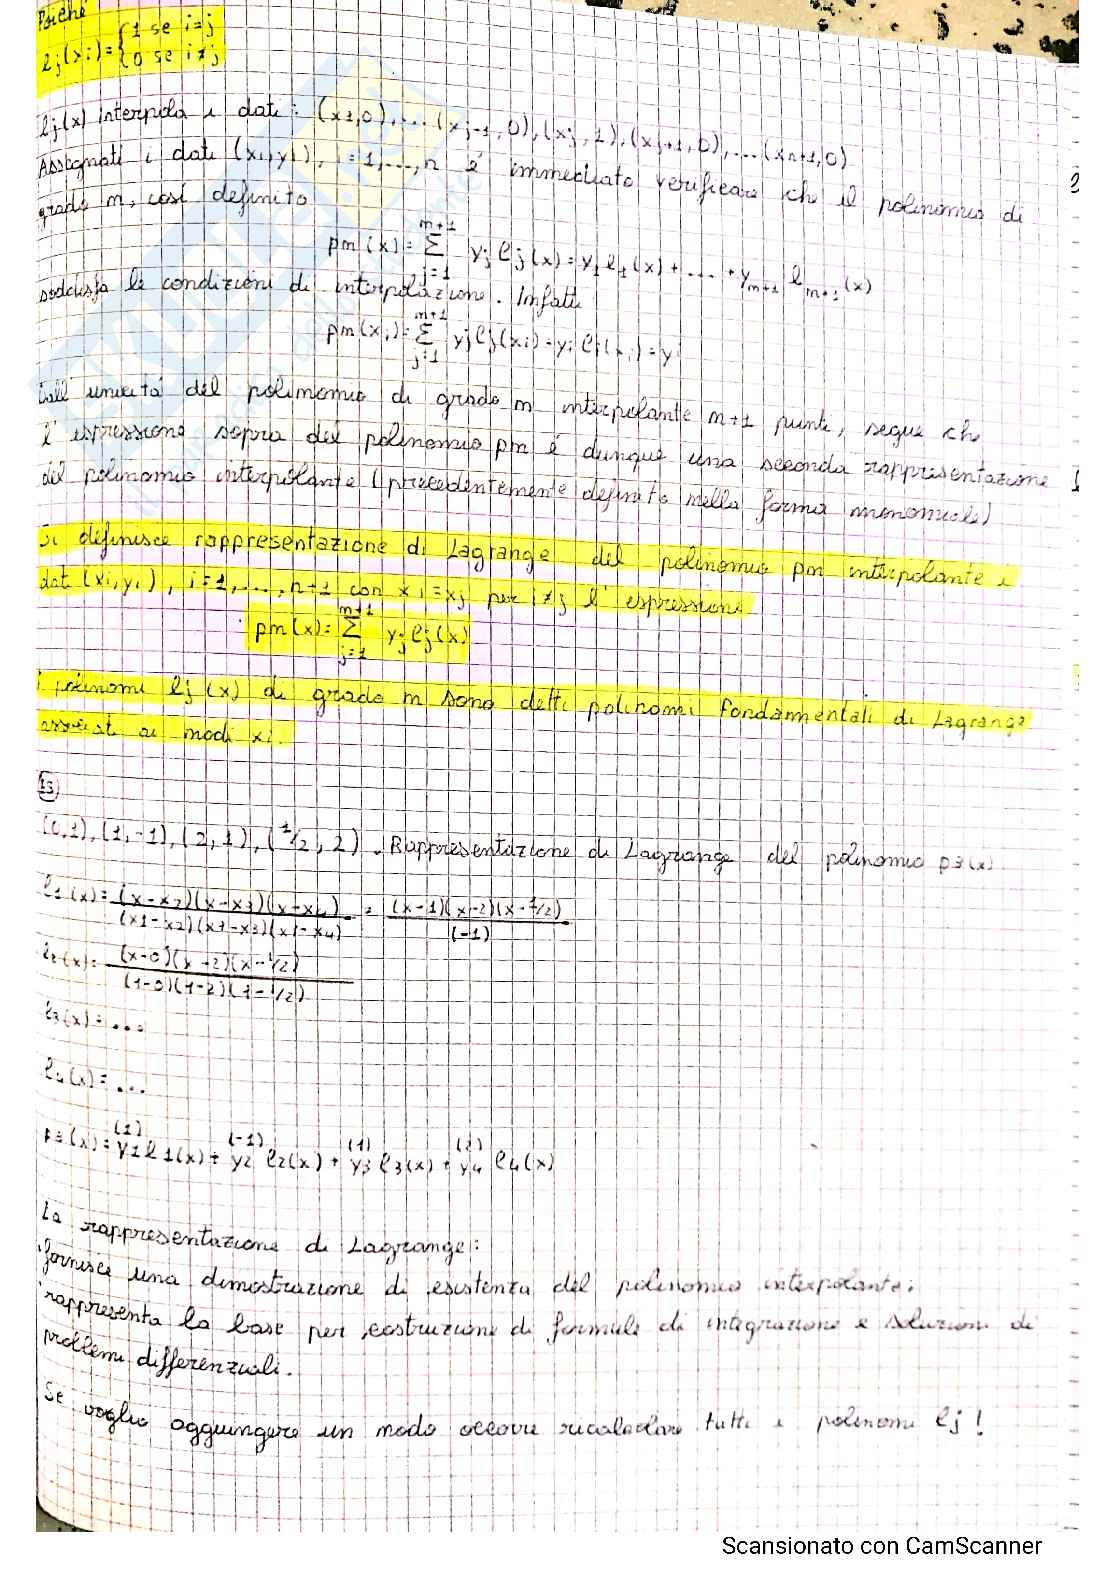 Poiché
lj(xi)={1 se i=j
0 se i≠j
lj(x) interpola i dati: (x1,0),...(xj-1,0),(xj,1),(xj+1,0),...(xn+1,0)
Assegnati i dati (xi,yi), i=1,...,n é immediato verificare che il polinomio di
grado n, così definito
pn(x)= n+1 Σ j=1 yj lj(x)=y1 l1(x)+....+yn+1 ln+1(x)
soddisfa le condizioni di interpolazione. Infatti
pn(xi)= n+1 Σ j=1 yj lj(xi)=yi li(xi)=yi
Dall'unicità del polinomio di grado n interpolante n+1 punti, segue che
l'espressione sopra del polinomio pn é dunque una seconda rappresentazione
del polinomio interpolante (precedentemente definito nella forma monomiale)
Si definisce rappresentazione di Lagrange del polinomio pn interpolante i
dati (xi,yi), i=1,...,n+1 con xi=xj per i≠j l'espressione
pn(x)= n+1 Σ j=1 yj lj(x)
i polinomi lj(x) di grado n sono detti polinomi fondamentali di Lagrange
associati ai nodi xi.
Es
(0,1),(1,-1),(2,1),(1/2,2). Rappresentazione di Lagrange del polinomio p3(x)
l1(x)= (x-x2)(x-x3)(x-x4) / (x1-x2)(x1-x3)(x1-x4) = (x-1)(x-2)(x-1/2) / (-1)
l2(x)= (x-0)(x-2)(x-1/2) / (1-0)(1-2)(1-1/2)
l3(x)=...
l4(x)=...
(1) (-1) (1) (2)
p3(x)= y1 l1(x)+ y2 l2(x)+ y3 l3(x)+ y4 l4(x)
La rappresentazione di Lagrange:
fornisce una dimostrazione di esistenza del polinomio interpolante;
rappresenta la base per costruzione di formule di integrazione e soluzioni di
problemi differenziali.
Se voglio aggiungere un nodo occorre ricalcolare tutti i polinomi lj!
Scansionato con CamScanner